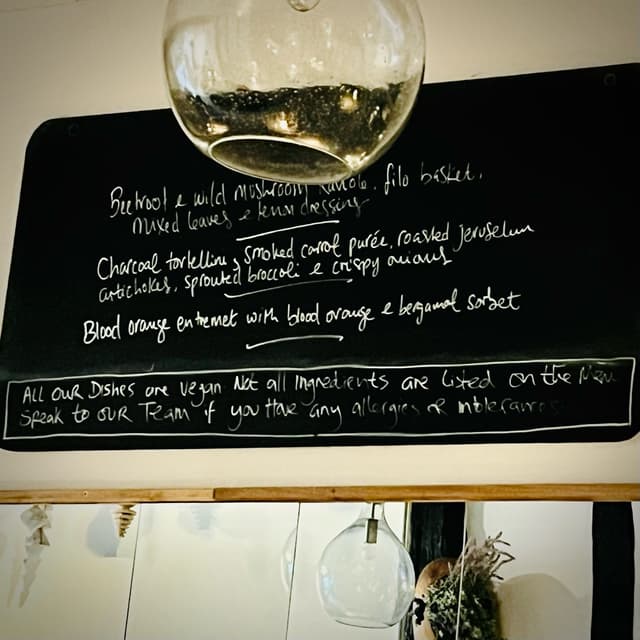 Beetroot e wild mushroom ravioli, filo basket,
mixed leaves e lemon dressing
Charcoal tortellini, smoked carrot purée, roasted jeruselum
artichokes, sprouted broccoli e crispy onions
Blood orange entremet with blood orange e bergamot sorbet
ALL OUR DISHES are vegan Not all Ingredients are Listed on the Menu
Speak to OUR Team if you Have any allergies or intolerances